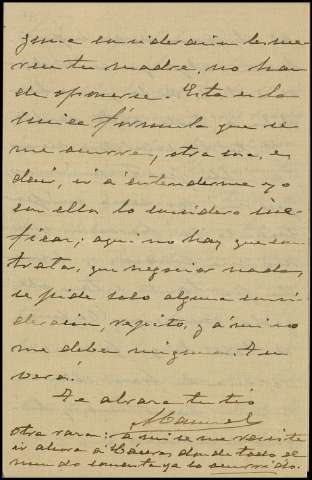 y una consideración le me-
rece tu madre, no han
de oponerse. Esta es la
única fórmula que se
me ocurre, otra no, es
decir, ir á entenderme yo
con ella lo considero ine-
ficaz; aqui no hay que con-
tratar, que negociar nada,
se pide solo alguna consi-
deración, repito, y á mi no
me deben ninguna. Tu
verá.
Te abraza tu tio
Manuel
otra razn: a mi se me resiste
ir ahora á Cáceres donde todo el
mundo comenta ya lo ocurrido.